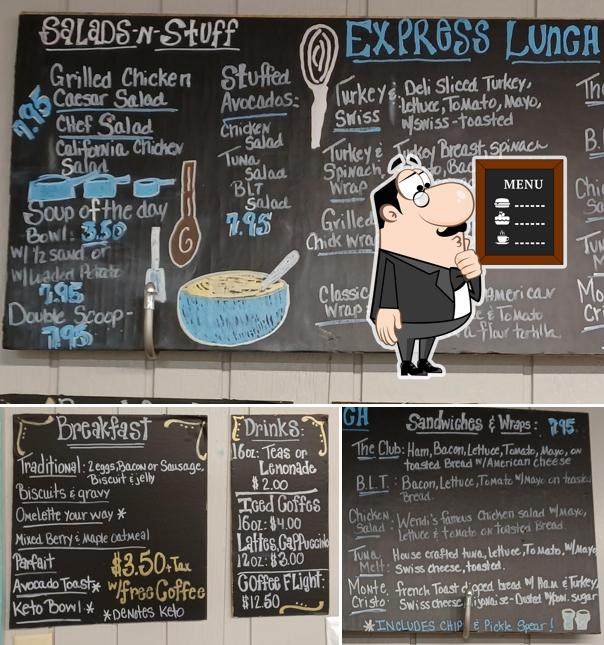 SALADS-N-STUFF
Grilled Chicken
Caesar Salad
7.95
Chef Salad
California Chicken
Salad
Soup of the day
Bowl: 3.50
w/ 1/2 sand or
w/ Loaded Potato
7.95
Double Scoop-
7.95
Stuffed
Avocados:
Chicken
Salad
Tuna
Salad
BLT
Salad
7.95
EXPRESS LUNCH
Turkey & Deli Sliced Turkey,
Swiss Lettuce, Tomato, Mayo,
w/swiss-toasted
Turkey & Turkey Breast, spinach
Spinach
Wrap
Grilled
Chick Wrap
Classic American
Wrap & Tomato
flour tortilla.
The
B.L
Chic
Sa
Tun
M
Mo
Cri
MENU
Breakfast
Traditional: 2 eggs, Bacon or Sausage,
Biscuit & jelly
Biscuits & gravy
Omelette your way *
Mixed Berry & Maple oatmeal
Parfait
Avocado Toast*
Keto Bowl*
$3.50 + Tax
w/free Coffee
*Denotes Keto
Drinks:
16oz: Teas or
Lemonade
$2.00
Iced Coffee
16oz: $4.00
Lattes, Cappuccino
12oz: $3.00
Coffee Flight:
$12.50
GH
Sandwiches & Wraps: 7.95
The Club: Ham, Bacon, Lettuce, Tomato, Mayo, on
toasted Bread w/American cheese
B.L.T.: Bacon, Lettuce, Tomato w/Mayo on toasted
Bread.
Chicken Wendi's famous Chicken salad w/Mayo,
Salad: Lettuce & tomato on toasted Bread.
Tuna House crafted tuna, Lettuce, Tomato, w/Mayo
Melt: Swiss cheese, toasted.
Monte French Toast dipped bread w/ Ham & Turkey,
Cristo: Swiss cheese, Dusted w/pow. sugar
*INCLUDES CHIPS & Pickle Spear!